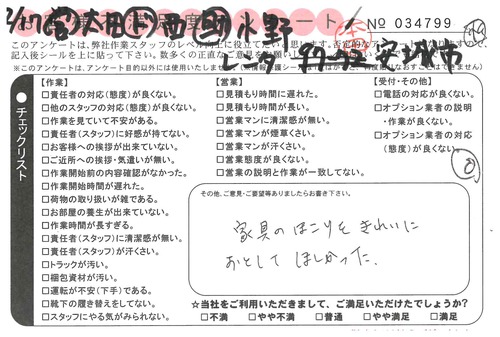 2/27 営 太田 下 西 水野
ート
No 034799
このアンケートは、弊社作業スタッフのレベル向上に役立てたい
記入後シールを上に貼って下さい。数多くの正直な
※このアンケートは、アンケート目的以外には使用いたしません
安城市
チェックリスト
【作業】
□責任者(態度)が良くない。
□他のスタッフの対応(態度)が良くない。
□作業を見ていて不安がある。
□責任者(スタッフ)に好感が持てない。
□お客様への挨拶が出来ていない。
□ご近所への挨拶・気遣いが無い。
□作業開始前の内容確認がなかった。
□作業開始時間が遅れた。
□荷物の取り扱いが雑である。
□お部屋の養生が出来ていない。
□作業時間が長すぎる。
□責任者(スタッフ)に清潔感が無い。
□責任者(スタッフ)が汗くさい。
□トラックが汚い。
□梱包資材が汚い。
□運転が不安(下手)である。
□靴下の履き替えをしてない。
□スタッフにやる気がみられない。
【営業】
□見積もり時間に遅れた。
□見積もり時間が長い。
□営業マンに清潔感が無い。
□営業マンが煙草くさい。
□営業マンが汗くさい。
□営業態度が良くない。
□営業の説明と作業が一致してない。
【受付・その他】
□電話の対応が良くない。
□オプション業者の説明
・作業が良くない。
□オプション業者の対応
(態度)が良くない。
その他、ご意見・ご要望等ありましたらお書き下さい。
家具のほこりをきれいに
おとしてほしかった。
☆当社をご利用いただきまして、ご満足いただけたでしょうか?
□不満 □やや不満 □普通 □やや満足 □満足